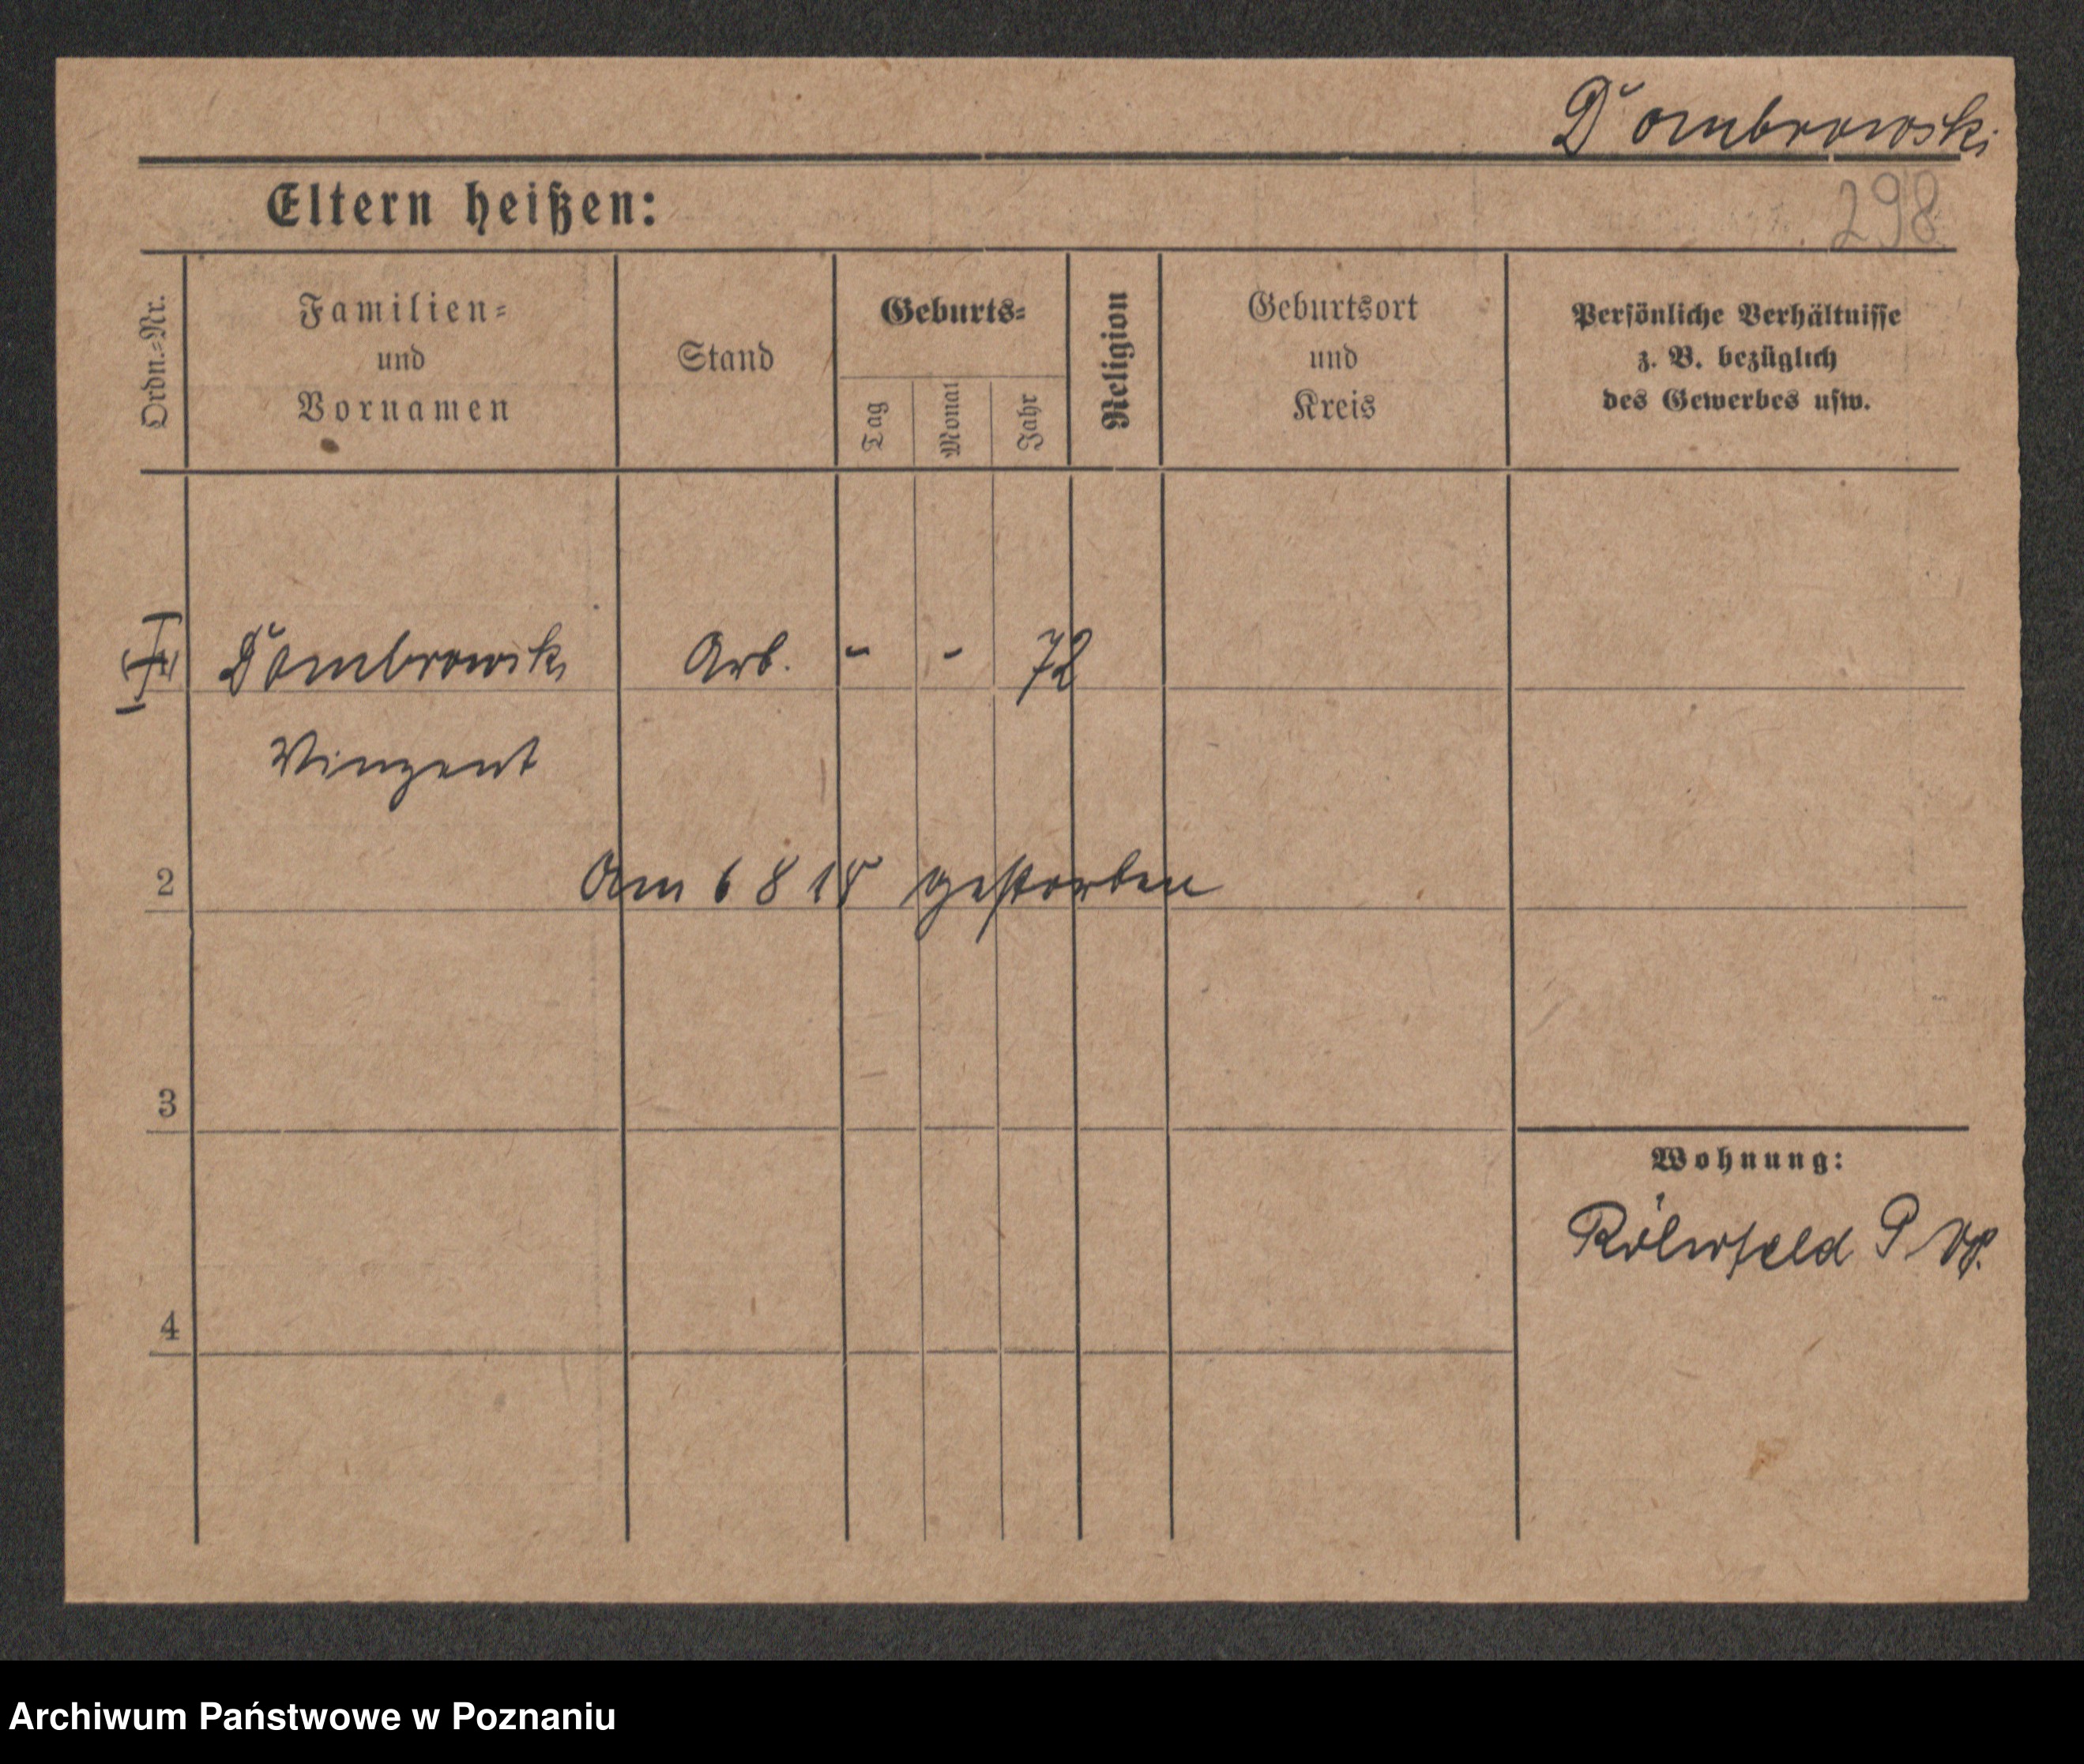 Dombrowski
Eltern heißen:
298
Ordn.=Nr.
Familien=
und
Vornamen
Stand
Geburts=
Tag
Monat
Jahr
Religion
Geburtsort
und
Kreis
Persönliche Verhältnisse
z. B. bezüglich
des Gewerbes usw.
Dombrowski Arb. - - 72
Vinzent
2
Am 6 8 18 gestorben
3
Wohnung:
4
Archiwum Państwowe w Poznaniu